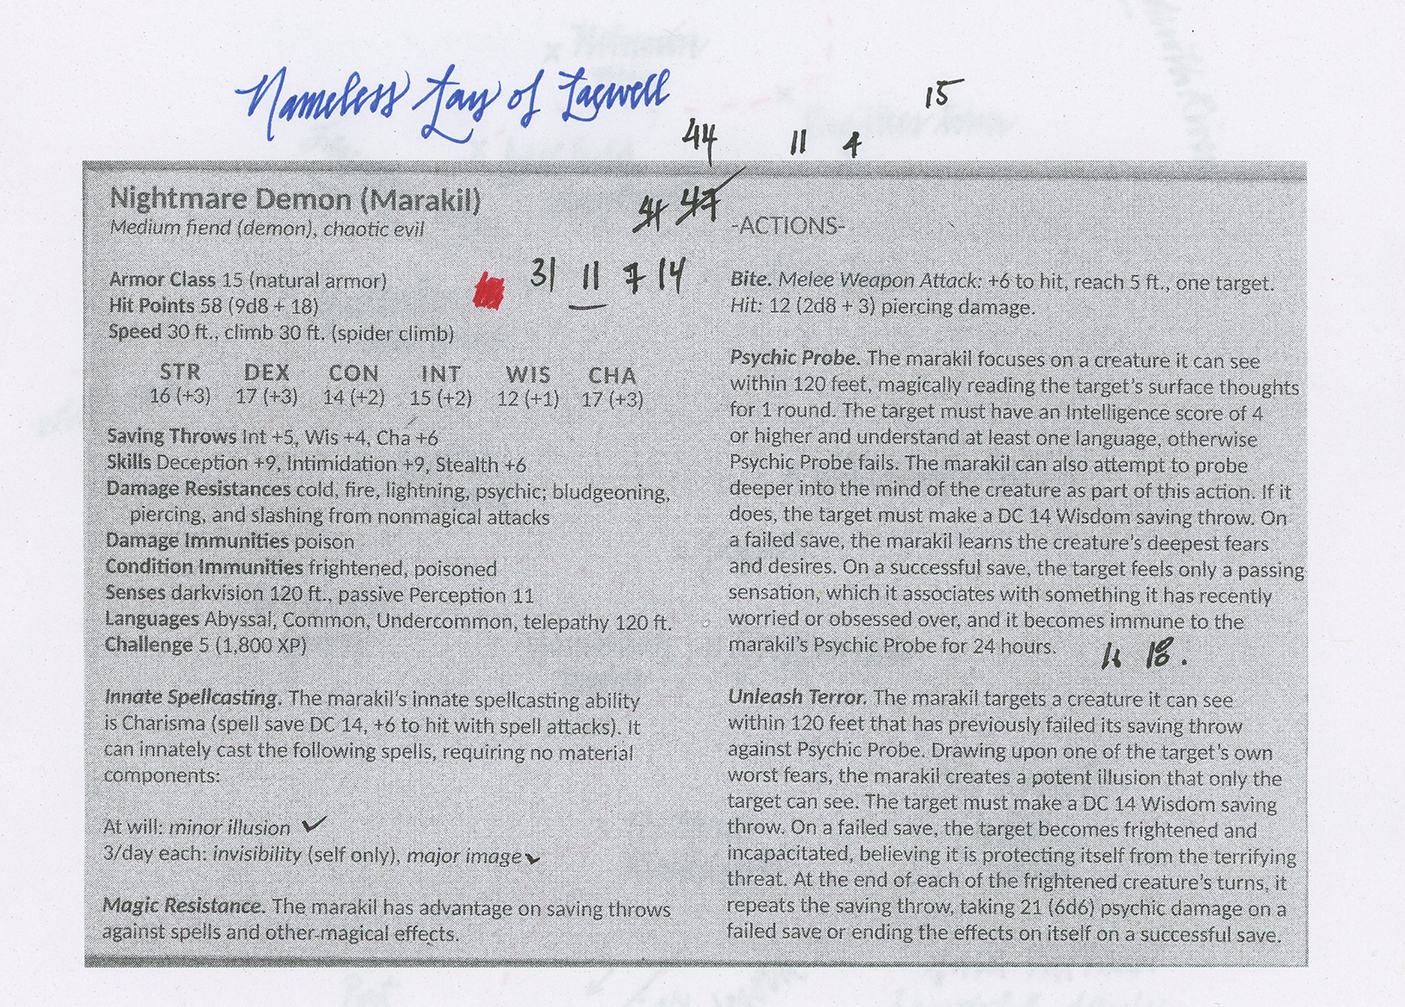 Nameless Fay of Taswell
15
44 11 4
41 47
31 11 7 14
Nightmare Demon (Marakil)
Medium fiend (demon), chaotic evil
Armor Class 15 (natural armor)
Hit Points 58 (9d8 + 18)
Speed 30 ft., climb 30 ft. (spider climb)
STR DEX CON INT WIS CHA
16 (+3) 17 (+3) 14 (+2) 15 (+2) 12 (+1) 17 (+3)
Saving Throws Int +5, Wis +4, Cha +6
Skills Deception +9, Intimidation +9, Stealth +6
Damage Resistances cold, fire, lightning, psychic; bludgeoning,
piercing, and slashing from nonmagical attacks
Damage Immunities poison
Condition Immunities frightened, poisoned
Senses darkvision 120 ft., passive Perception 11
Languages Abyssal, Common, Undercommon, telepathy 120 ft.
Challenge 5 (1,800 XP)
Innate Spellcasting. The marakil's innate spellcasting ability
is Charisma (spell save DC 14, +6 to hit with spell attacks). It
can innately cast the following spells, requiring no material
components:
At will: minor illusion ✓
3/day each: invisibility (self only), major image ✓
Magic Resistance. The marakil has advantage on saving throws
against spells and other magical effects.
-ACTIONS-
Bite. Melee Weapon Attack: +6 to hit, reach 5 ft., one target.
Hit: 12 (2d8 + 3) piercing damage.
Psychic Probe. The marakil focuses on a creature it can see
within 120 feet, magically reading the target's surface thoughts
for 1 round. The target must have an Intelligence score of 4
or higher and understand at least one language, otherwise
Psychic Probe fails. The marakil can also attempt to probe
deeper into the mind of the creature as part of this action. If it
does, the target must make a DC 14 Wisdom saving throw. On
a failed save, the marakil learns the creature's deepest fears
and desires. On a successful save, the target feels only a passing
sensation, which it associates with something it has recently
worried or obsessed over, and it becomes immune to the
marakil's Psychic Probe for 24 hours.
18.
Unleash Terror. The marakil targets a creature it can see
within 120 feet that has previously failed its saving throw
against Psychic Probe. Drawing upon one of the target's own
worst fears, the marakil creates a potent illusion that only the
target can see. The target must make a DC 14 Wisdom saving
throw. On a failed save, the target becomes frightened and
incapacitated, believing it is protecting itself from the terrifying
threat. At the end of each of the frightened creature's turns, it
repeats the saving throw, taking 21 (6d6) psychic damage on a
failed save or ending the effects on itself on a successful save.